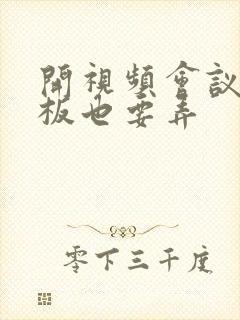 開視頻會議
板也要弄
零下三千度